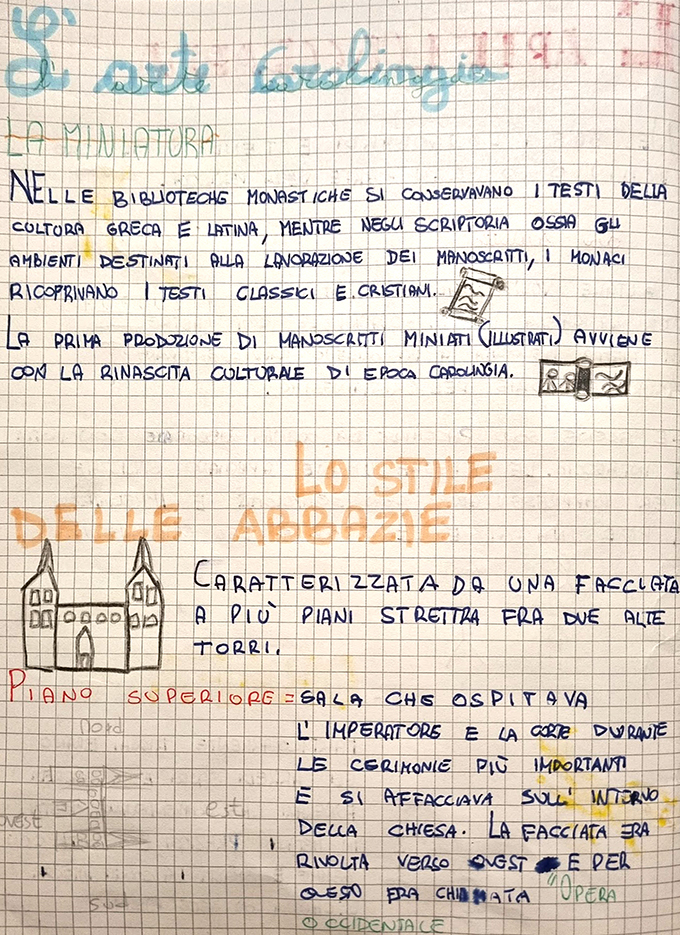 L'arte Carolingia
LA MINIATURA
NELLE BIBLIOTECHE MONASTICHE SI CONSERVAVANO I TESTI DELLA
CULTURA GRECA E LATINA, MENTRE NEGLI SCRIPTORIA OSSIA GLI
AMBIENTI DESTINATI ALLA LAVORAZIONE DEI MANOSCRITTI, I MONACI
RICOPRIVANO I TESTI CLASSICI E CRISTIANI.
LA PRIMA PRODUZIONE DI MANOSCRITTI MINIATI (ILLUSTRATI) AVVIENE
CON LA RINASCITA CULTURALE DI EPOCA CAROLINGIA.
LO STILE
DELLE ABBAZIE
CARATTERIZZATA DA UNA FACCIATA
A PIÙ PIANI STRETTRA FRA DUE ALTE
TORRI.
PIANO SUPERIORE = SALA CHE OSPITAVA
L'IMPERATORE E LA CORTE DURANTE
LE CERIMONIE PIÙ IMPORTANTI
E SI AFFACCIAVA SULL'INTERNO
DELLA CHIESA. LA FACCIATA ERA
RIVOLTA VERSO OVEST E PER
QUESO ERA CHIAMATA "OPERA
OCCIDENTALE
nord
est
ovest
sud